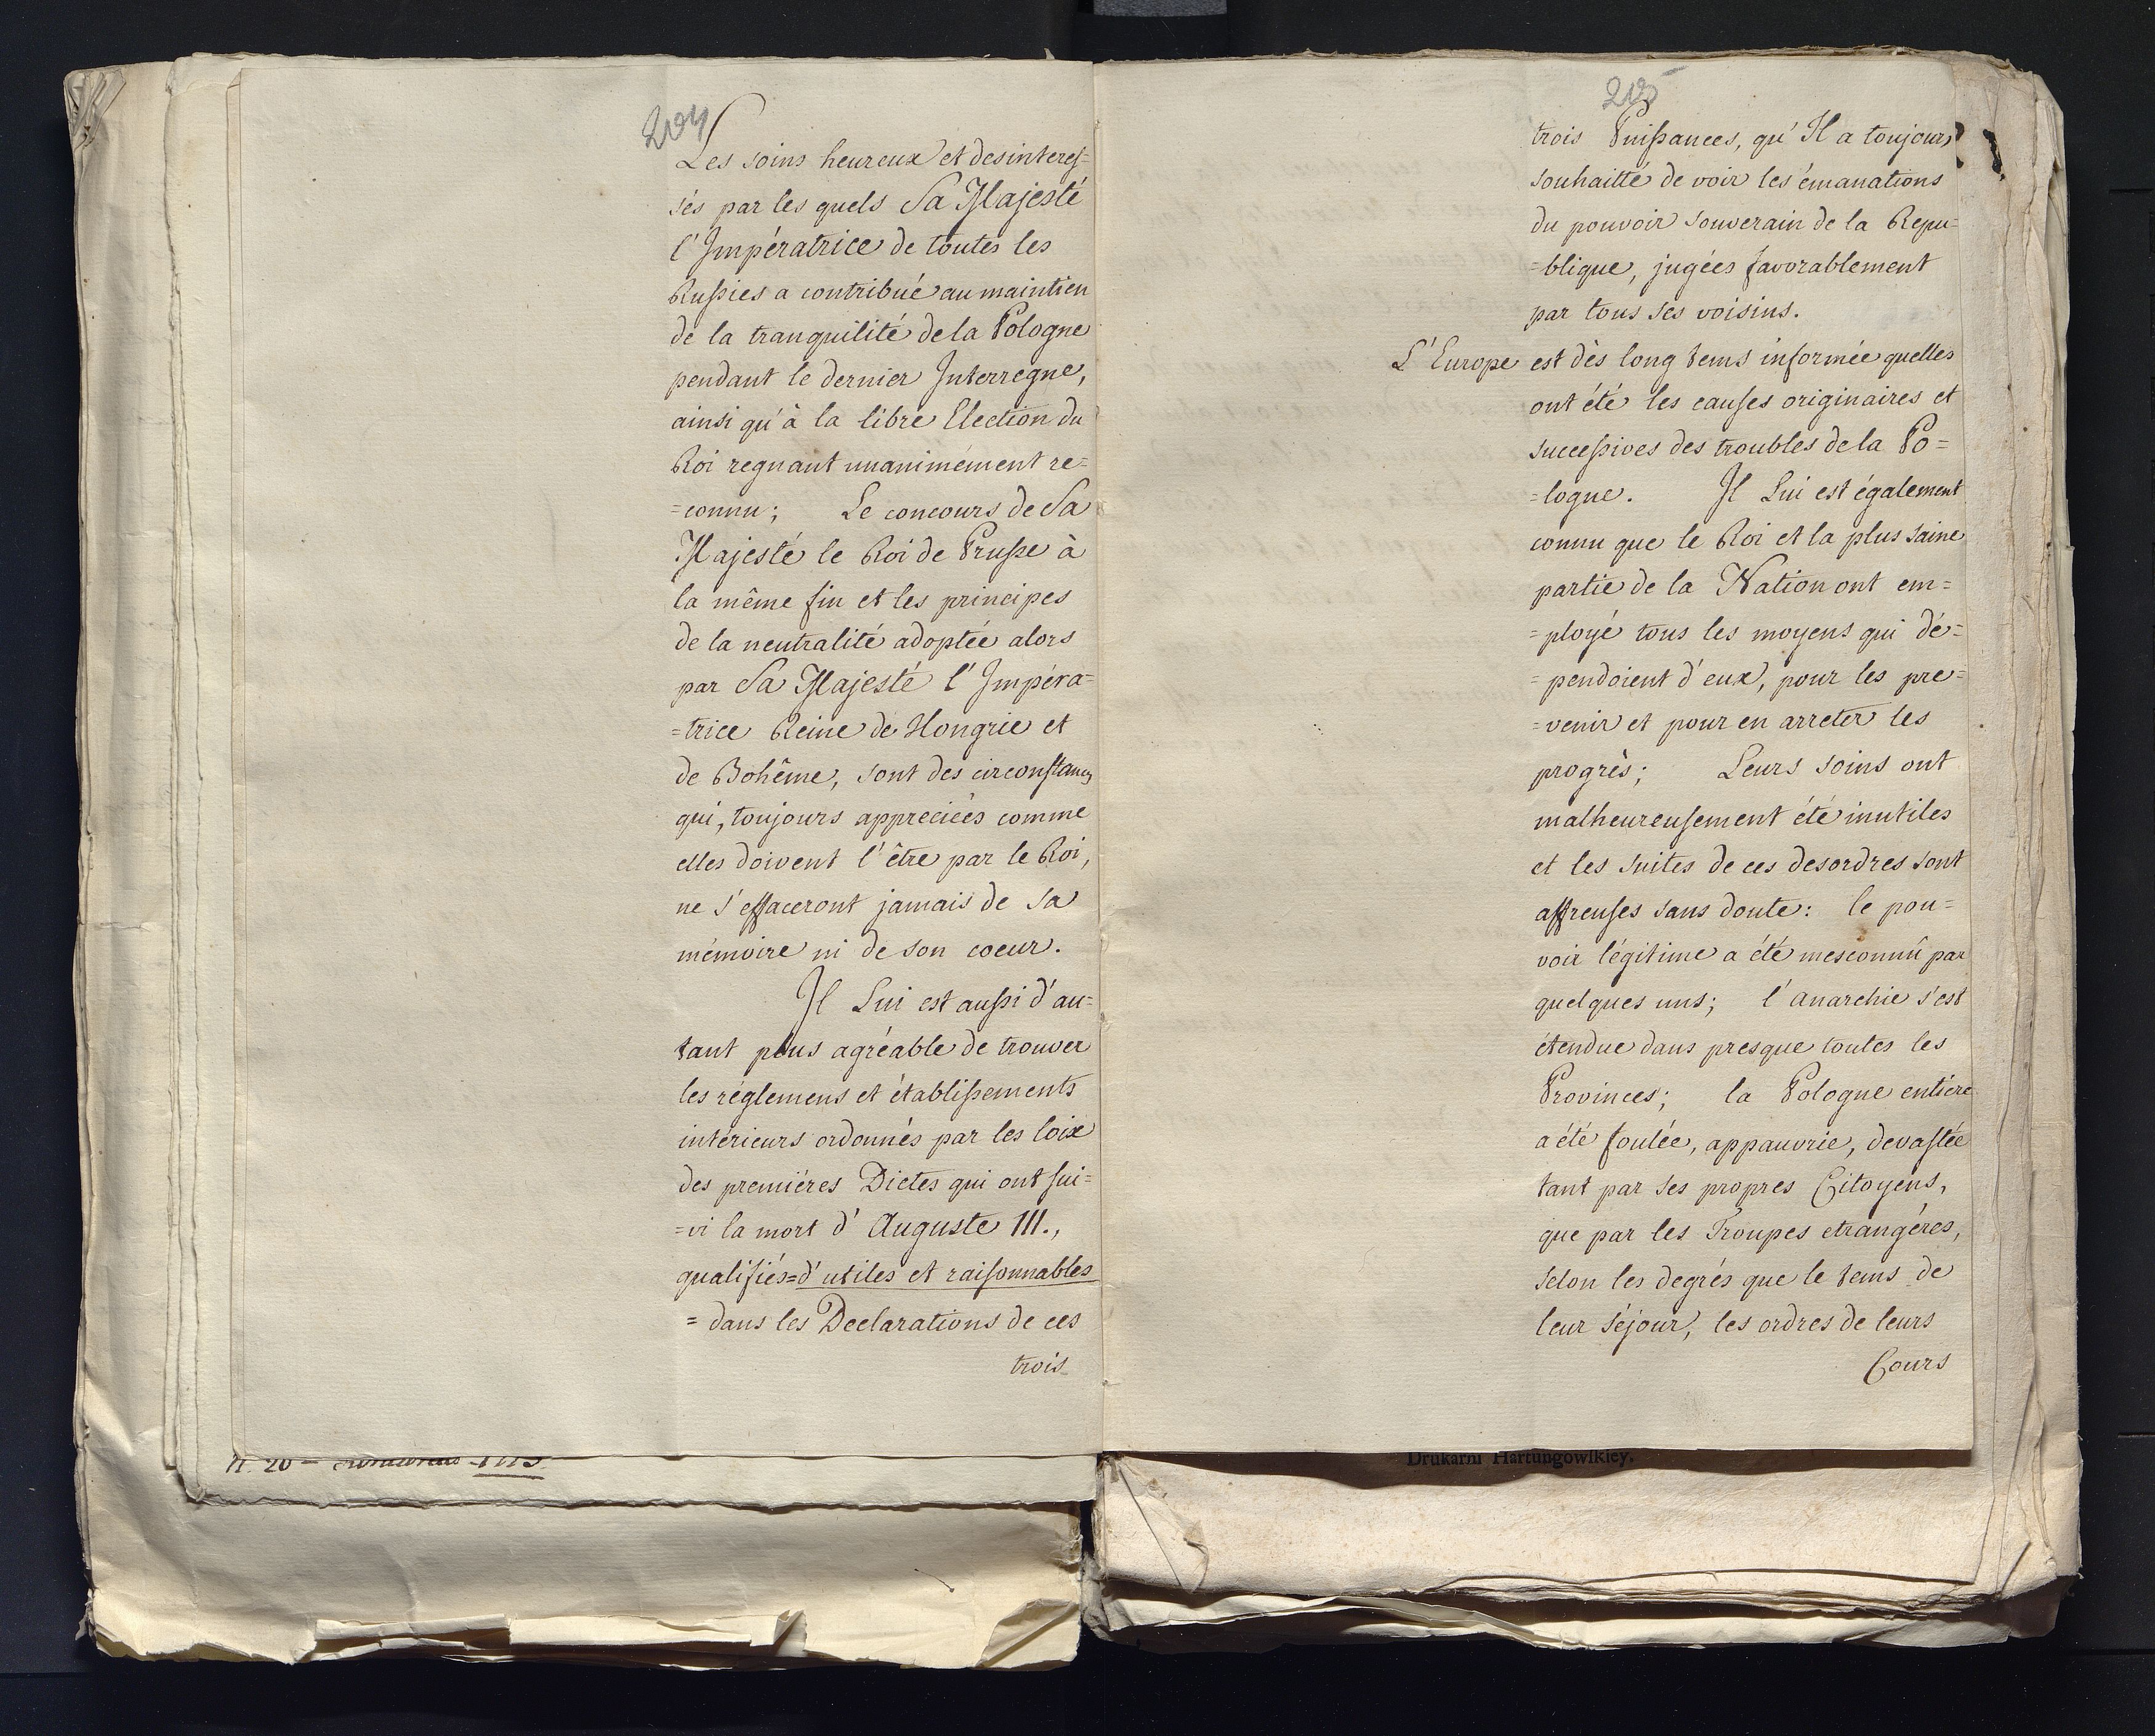 204
Les soins heureux et desinteres=
sés par les quels Sa Majesté
l'Impératrice de toutes les
Russies a contribué au maintien
de la tranquilité de la Pologne
pendant le dernier Interregne,
ainsi qu'à la libre Election du
Roi regnant unanimément re=
=connu; Le concours de Sa
Majesté le Roi de Prusse à
la même fin et les principes
de la neutralité adoptée alors
par Sa Majesté l'Impéra=
=trice Reine de Hongrie et
de Bohême, sont des circonstances
qui, toujours appreciées comme
elles doivent l'être par le Roi,
ne s'effaceront jamais de sa
mémoire ni de son coeur.
Il Lui est aussi d'au=
tant plus agréable de trouver
les réglemens et établissements
intérieurs ordonnés par les loix
des premiéres Dietes qui ont sui=
=vi la mort d'Auguste III.,
qualifiés=d'utiles et raisonnables
=dans les Declarations de ces
trois
205
trois Puissances, qu'Il a toujours
souhaitté de voir les émanations
du pouvoir souverain de la Repu=
=blique, jugées favorablement
par tous ses voisins.
L'Europe est dès long tems informée quelles
ont été les causes originaires et
successives des troubles de la Po=
=logne. Il Lui est également
connu que le Roi et la plus saine
partie de la Nation ont em=
=ployé tous les moyens qui dé=
=pendoient d'eux, pour les pre=
=venir et pour en arreter les
progrès; Leurs soins ont
malheureusement été inutiles
et les suites de ces desordres sont
affreuses sans doute: le pou=
voir légitime a été mesconnû par
quelques uns; l'anarchie s'est
étendue dans presque toutes les
Provinces; la Pologne entiere
a été foulée, appauvrie, devastée
tant par ses propres Citoyens,
que par les Troupes etrangéres,
selon les degrés que le tems de
leur séjour, les ordres de leurs
Cours
Drukarni Hartungowſkiey.